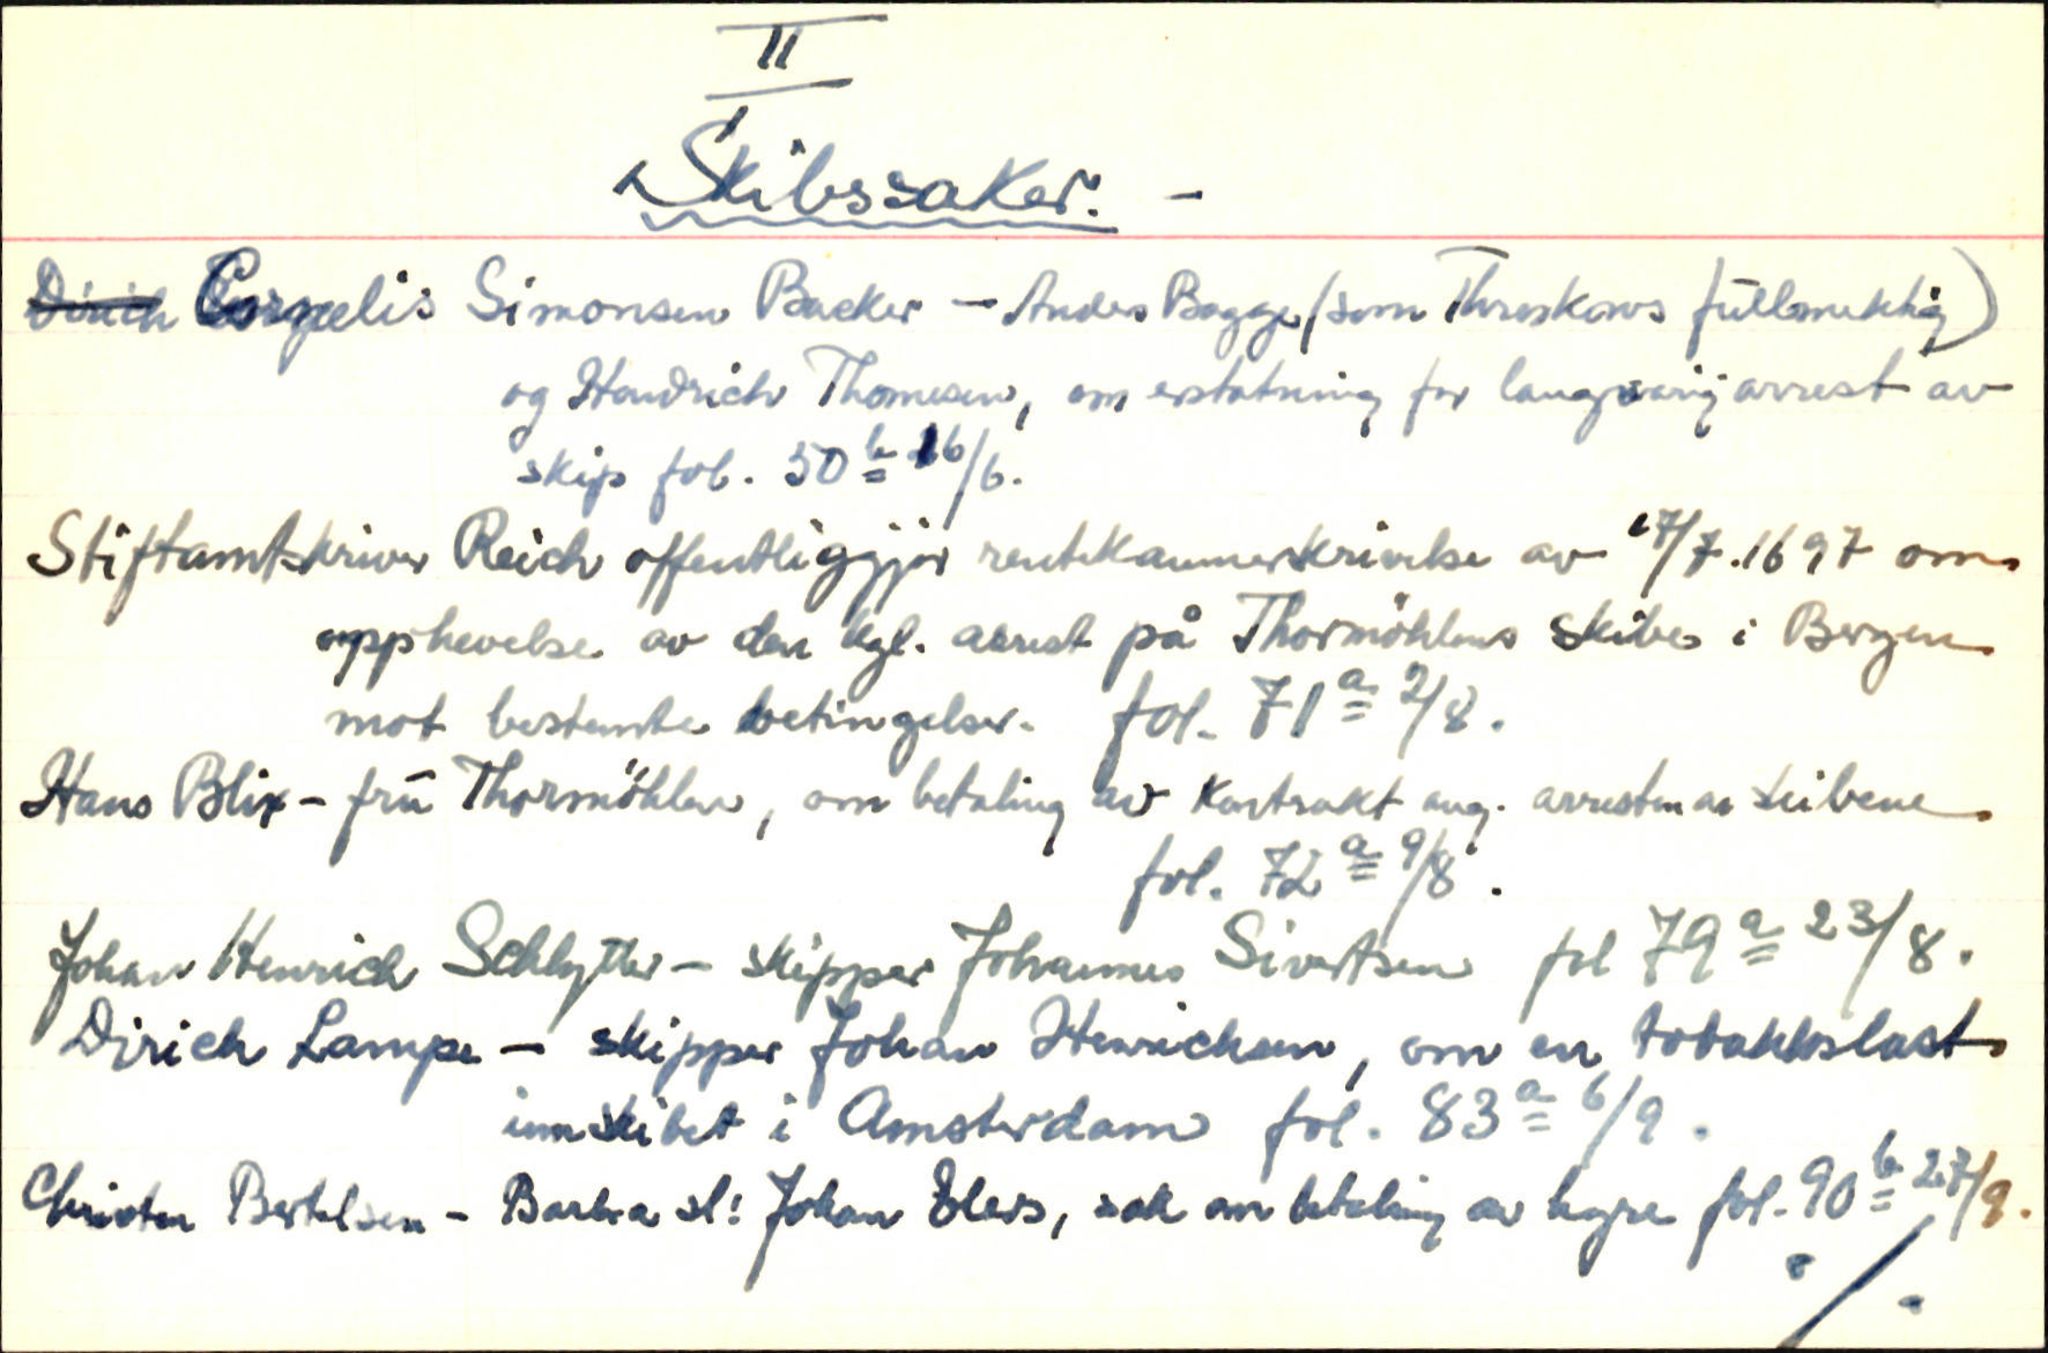 II
Skibssaker. -
Dirich Cornelis Simonsen Backer - Anders Bagge (som Threskows fullmektig)
og Hendrich Thomesen, om erstatning for langvarig arrest av
skip fol. 50b 16/6.
Stiftamtskriver Reich offentliggjør rentekammerskrivelse av 17/7.1697 om
opphevelse av den kgl. arrest på Thormöhlens skibe i Bergen
mot bestemte betingelser. fol. 71a 2/8.
Hans Blix - fru Thormöhlen, om betaling av kontrakt ang. arresten av skibene
fol. 72a 9/8.
Johan Henrich Schlyter - skipper Johannes Sivertsen fol 79a 23/8.
Dirich Lampe - skipper Johan Henrichsen, om en tobakkslast
innskibet i Amsterdam fol. 83a 6/9.
Christen Bertelsen - Barbra sl: Johan Elers, sak om betaling av hyre fol. 90b 27/9.
./.